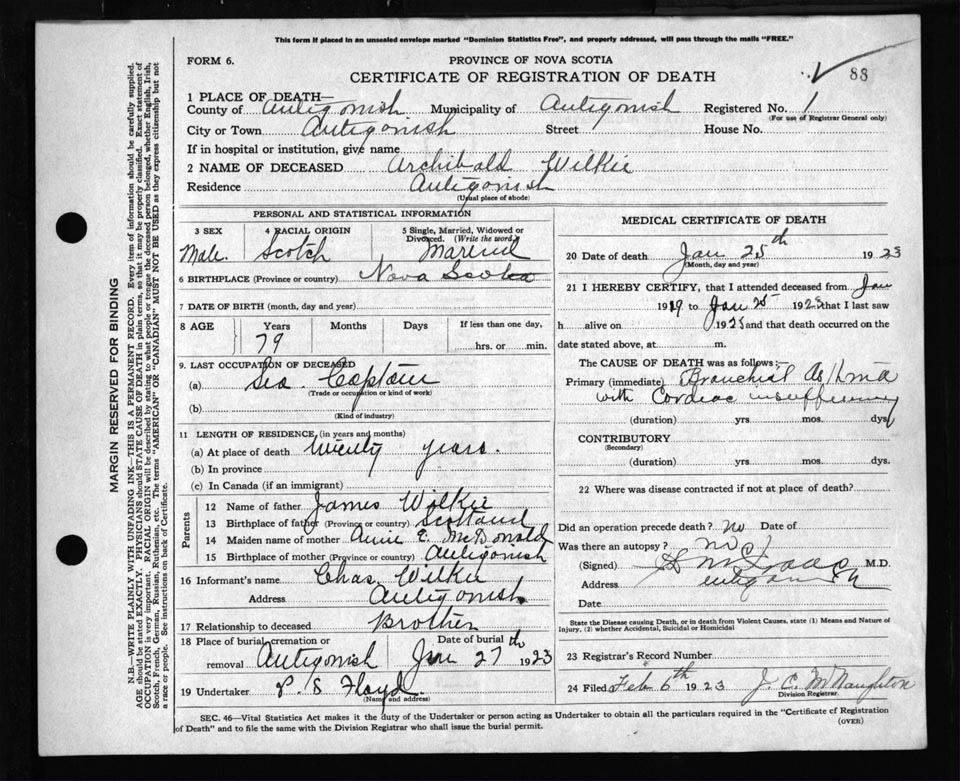 This form if placed in an unsealed envelope marked "Dominion Statistics Free", and properly addressed, will pass through the mails "FREE."
FORM 6.
PROVINCE OF NOVA SCOTIA
CERTIFICATE OF REGISTRATION OF DEATH
88
1 PLACE OF DEATH—
County of Antigonish Municipality of Antigonish Registered No. 1
(For use of Registrar General only)
City or Town Antigonish Street House No.
If in hospital or institution, give name
2 NAME OF DECEASED Archibald Wilkie
Residence Antigonish
(Usual place of abode)
PERSONAL AND STATISTICAL INFORMATION
3 SEX 4 RACIAL ORIGIN 5 Single, Married, Widowed or Divorced. (Write the word)
Male. Scotch Married
6 BIRTHPLACE (Province or country) Nova Scotia
7 DATE OF BIRTH (month, day and year)
8 AGE Years Months Days If less than one day,
79 hrs. or min.
9. LAST OCCUPATION OF DECEASED
(a) Sea Captain
(Trade or occupation or kind of work)
(b)
(Kind of industry)
11 LENGTH OF RESIDENCE, (in years and months)
(a) At place of death twenty years.
(b) In province
(c) In Canada (if an immigrant)
Parents
12 Name of father James Wilkie
13 Birthplace of father (Province or country) Scotland
14 Maiden name of mother Annie E. McDonald
15 Birthplace of mother (Province or country) Antigonish
16 Informant's name Chas. Wilkie
Address Antigonish
17 Relationship to deceased Brother
18 Place of burial, cremation or removal Antigonish Date of burial Jan 27th 1923
19 Undertaker P. S. Floyd.
(Name and address)
MEDICAL CERTIFICATE OF DEATH
20 Date of death Jan 25th 1923
(Month, day and year)
21 I HEREBY CERTIFY, that I attended deceased from Jan
19 to Jan 25 1923 that I last saw
h alive on 1923 and that death occurred on the
date stated above, at m.
The CAUSE OF DEATH was as follows:
Primary (immediate) Bronchial Asthma
with Cardiac insufficiency
(duration) yrs. mos. dys.
CONTRIBUTORY
(Secondary)
(duration) yrs. mos. dys.
22 Where was disease contracted if not at place of death?
Did an operation precede death? no Date of
Was there an autopsy? no
(Signed) M.D.
Address Antigonish
Date
State the Disease causing Death, or in death from Violent Causes, state (1) Means and Nature of Injury, (2) whether Accidental, Suicidal or Homicidal
23 Registrar's Record Number
24 Filed Feb 6th 1923 J. C. McNaughton
Division Registrar.
SEC. 46—Vital Statistics Act makes it the duty of the Undertaker or person acting as Undertaker to obtain all the particulars required in the "Certificate of Registration
of Death" and to file the same with the Division Registrar who shall issue the burial permit.
(OVER)
MARGIN RESERVED FOR BINDING
N.B.—WRITE PLAINLY WITH UNFADING INK—THIS IS A PERMANENT RECORD. Every item of information should be carefully supplied.
AGE should be stated EXACTLY. PHYSICIANS should STATE CAUSE OF DEATH in plain terms, so that it may be properly classified. Exact statement of
OCCUPATION is very important. RACIAL ORIGIN will be described by stating to what people or tongue the deceased person belonged, whether English, Irish,
Scotch, French, German, Russian, Ruthenian, etc. The terms "AMERICAN" OR "CANADIAN" MUST NOT BE USED as they express citizenship but not
a race or people. See instructions on back of Certificate.